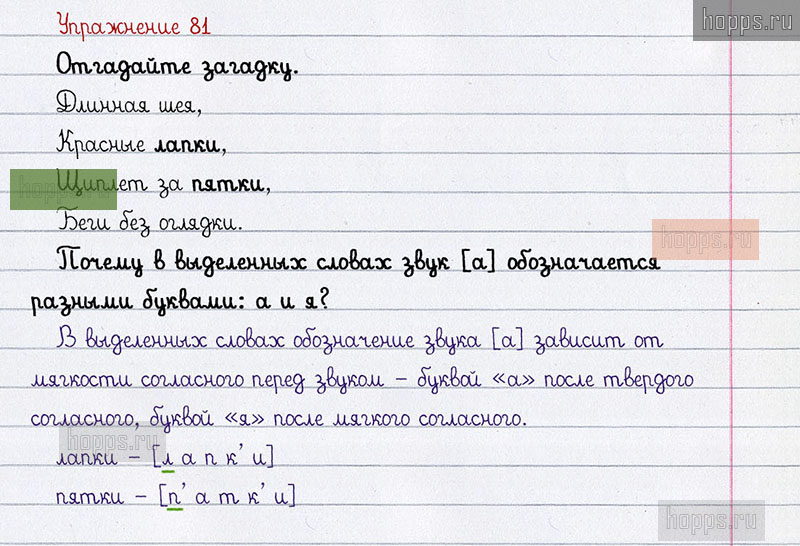 Упражнение 81
hopps.ru
Отгадайте загадку.
Длинная шея,
Красные лапки,
Щиплет за пятки,
hopps.ru
Беги без оглядки.
hopps.ru
Почему в выделенных словах звук [а] обозначается
разными буквами: а и я?
В выделенных словах обозначение звука [а] зависит от
мягкости согласного перед звуком – буквой «а» после твердого
согласного, буквой «я» после мягкого согласного.
hopps.ru
лапки – [л а п к’ и]
пятки – [п’ а т к’ и]
hopps.ru